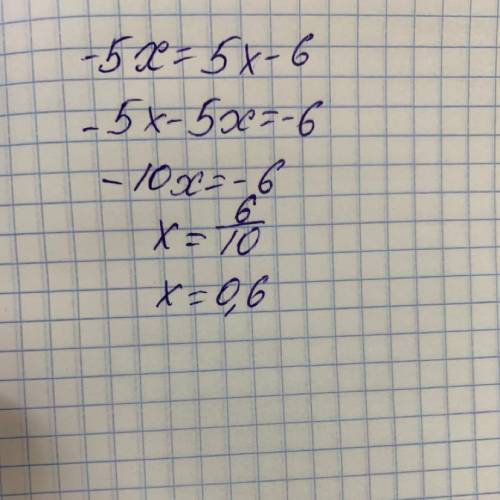 -5x = 5x - 6
-5x - 5x = -6
-10x = -6
x = 6/10
x = 0,6